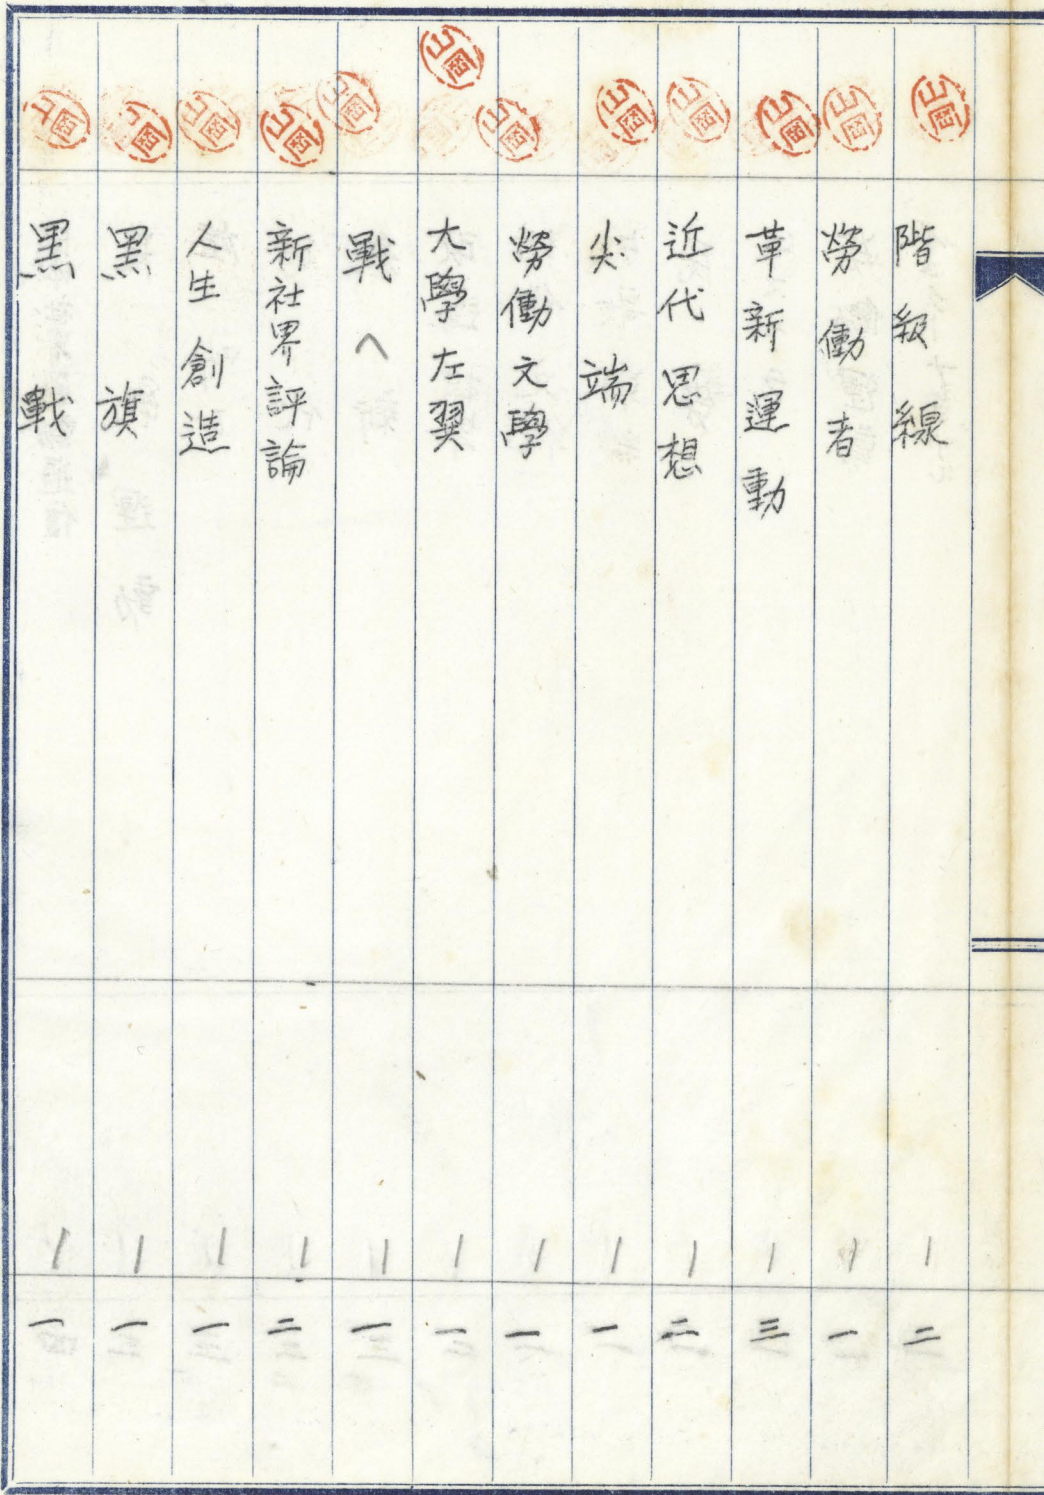 山岡 階級線 1 二
山岡 勞働者 1 一
山岡 革新運動 1 三
山岡 近代思想 1 二
山岡 尖端 1 一
山岡 勞働文學 1 一
山岡 大學左翼 1 一
山岡 戰へ 1 一
山岡 新社界評論 1 二
山岡 人生創造 1 一
山岡 黒旗 1 一
山岡 黒戰 1 一